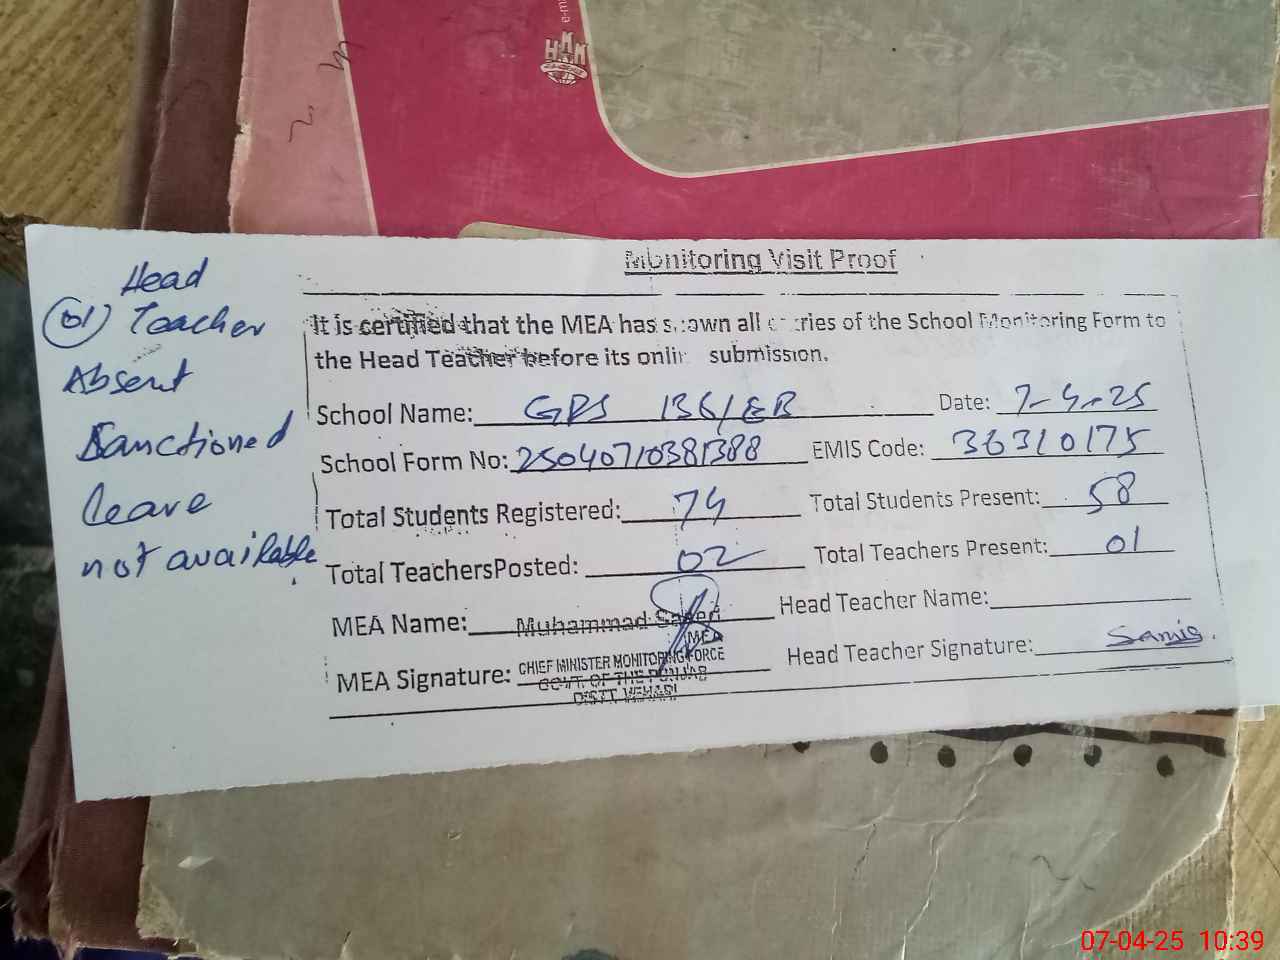 HKM
Monitoring Visit Proof
It is certified that the MEA has shown all entries of the School Monitoring Form to
the Head Teacher before its onli submission.
School Name: GPS 136/EB Date: 7-4-25
School Form No: 25040710381388 EMIS Code: 36310175
Total Students Registered: 74 Total Students Present: 58
Total TeachersPosted: 02 Total Teachers Present: 01
MEA Name: Muhammad Head Teacher Name:
MEA
MEA Signature: CHIEF MINISTER MONITORING FORCE Head Teacher Signature:
GOVT. OF THE PUNJAB
DISTT. VEHARI
Head
01 Teacher
Absent
Sanctioned
leave
not available.
07-04-25 10:39